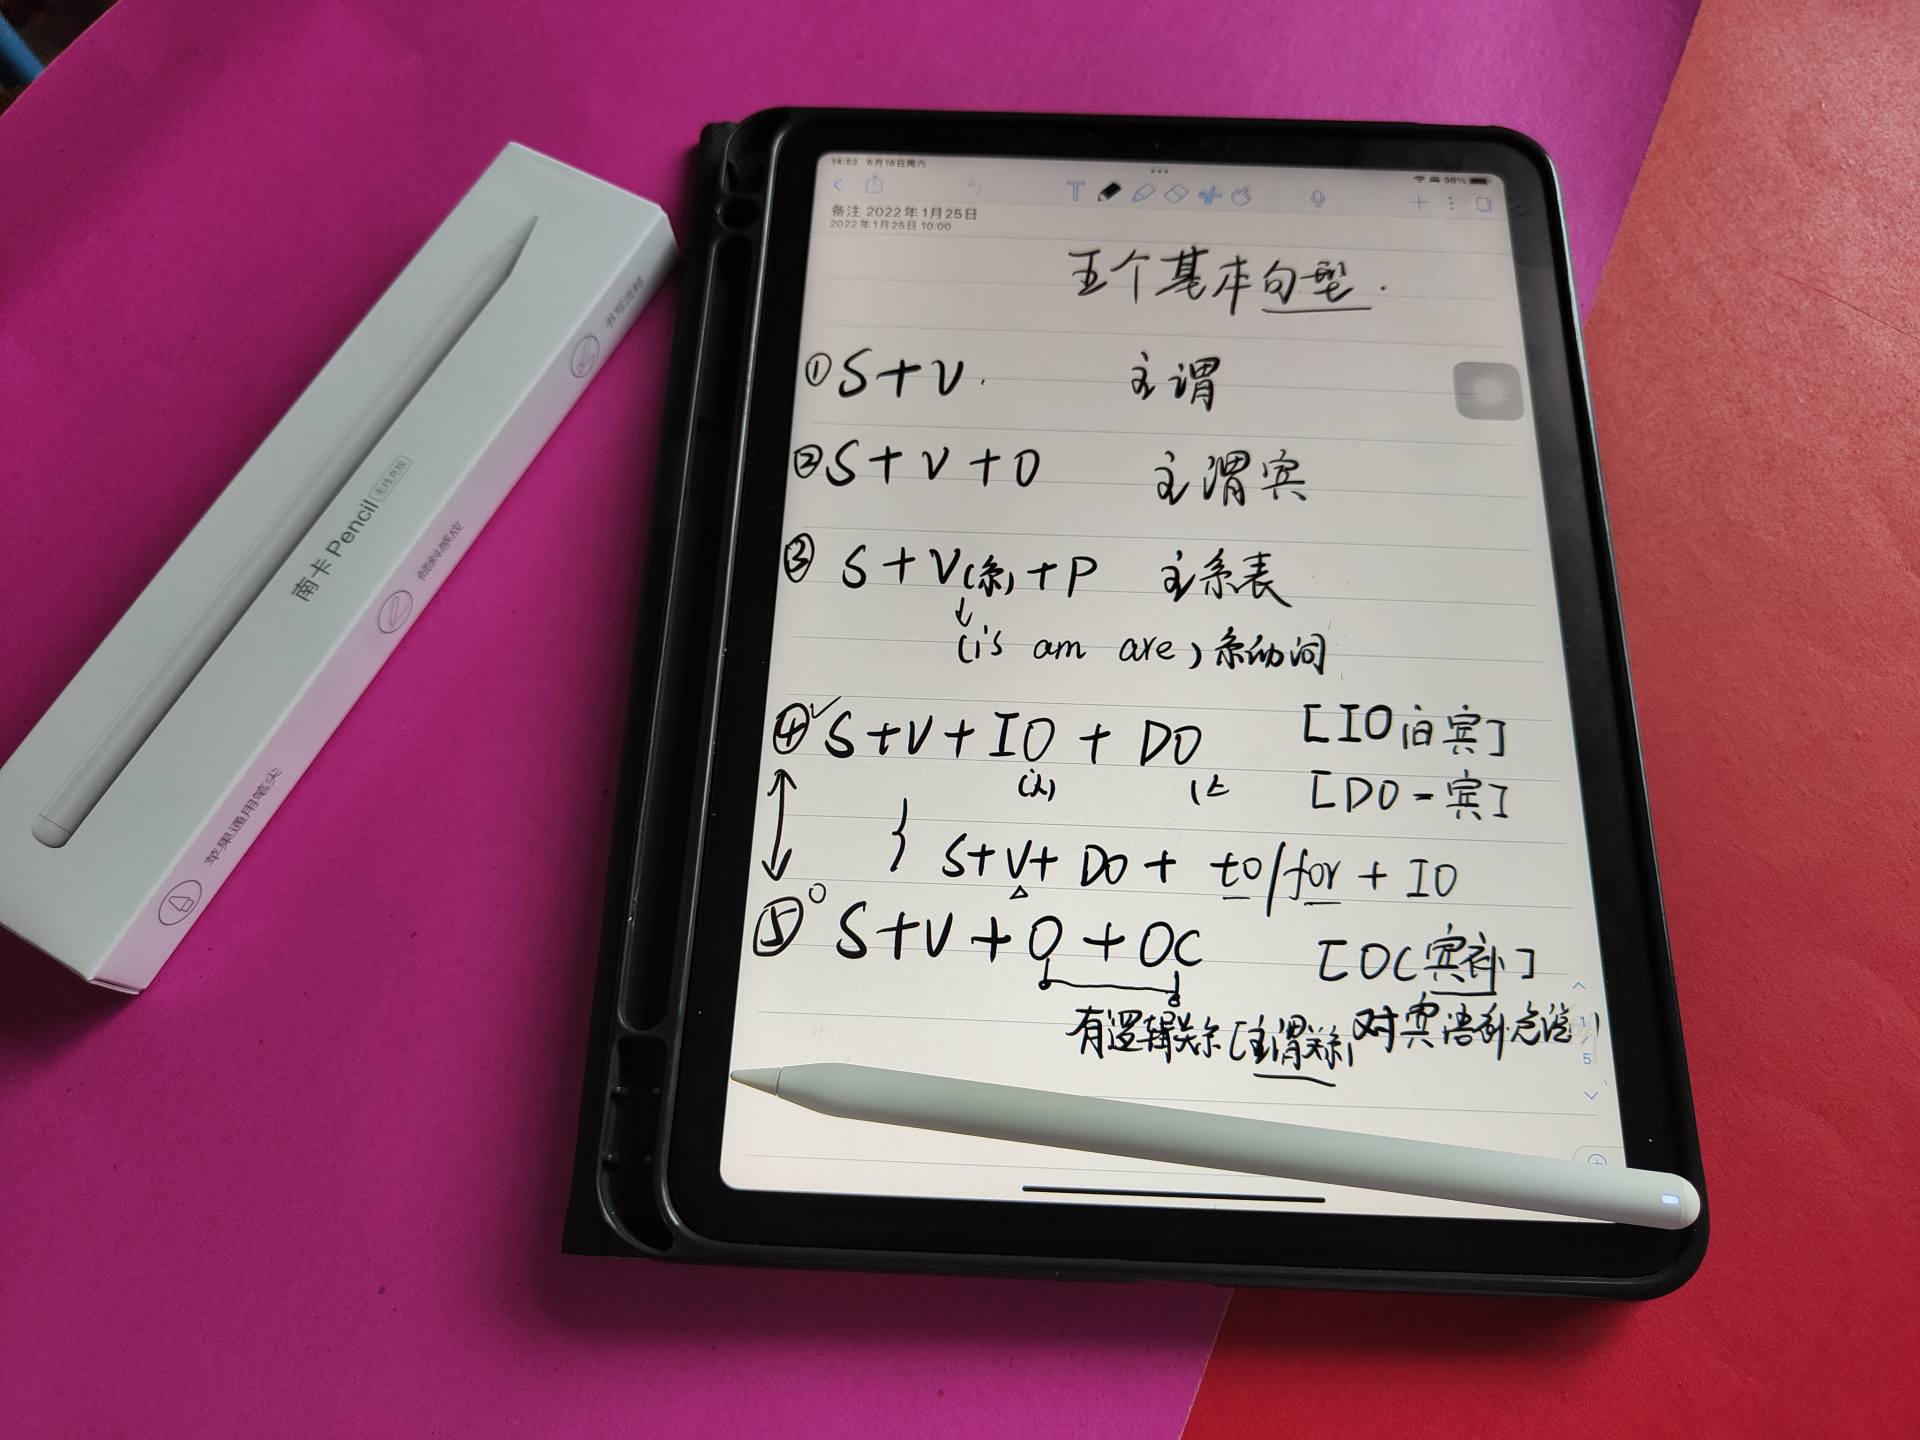 南卡 Pencil 无线充版
书写流畅
倾斜感应
苹果通用笔尖
14:52 6月18日周六
98%
备注 2022年1月25日
2022年1月25日 10:00
五个基本句型.
①S+V. 主谓
②S+V+O 主谓宾
③ S+V(系)+P 主系表
(is am are)系动词
④S+V+IO+DO [IO 间宾]
(人) [DO-宾]
S+V+DO+to/for+IO
⑤S+V+O+OC [OC宾补]
有逻辑关系[主谓关系] 对宾语补充
1/5